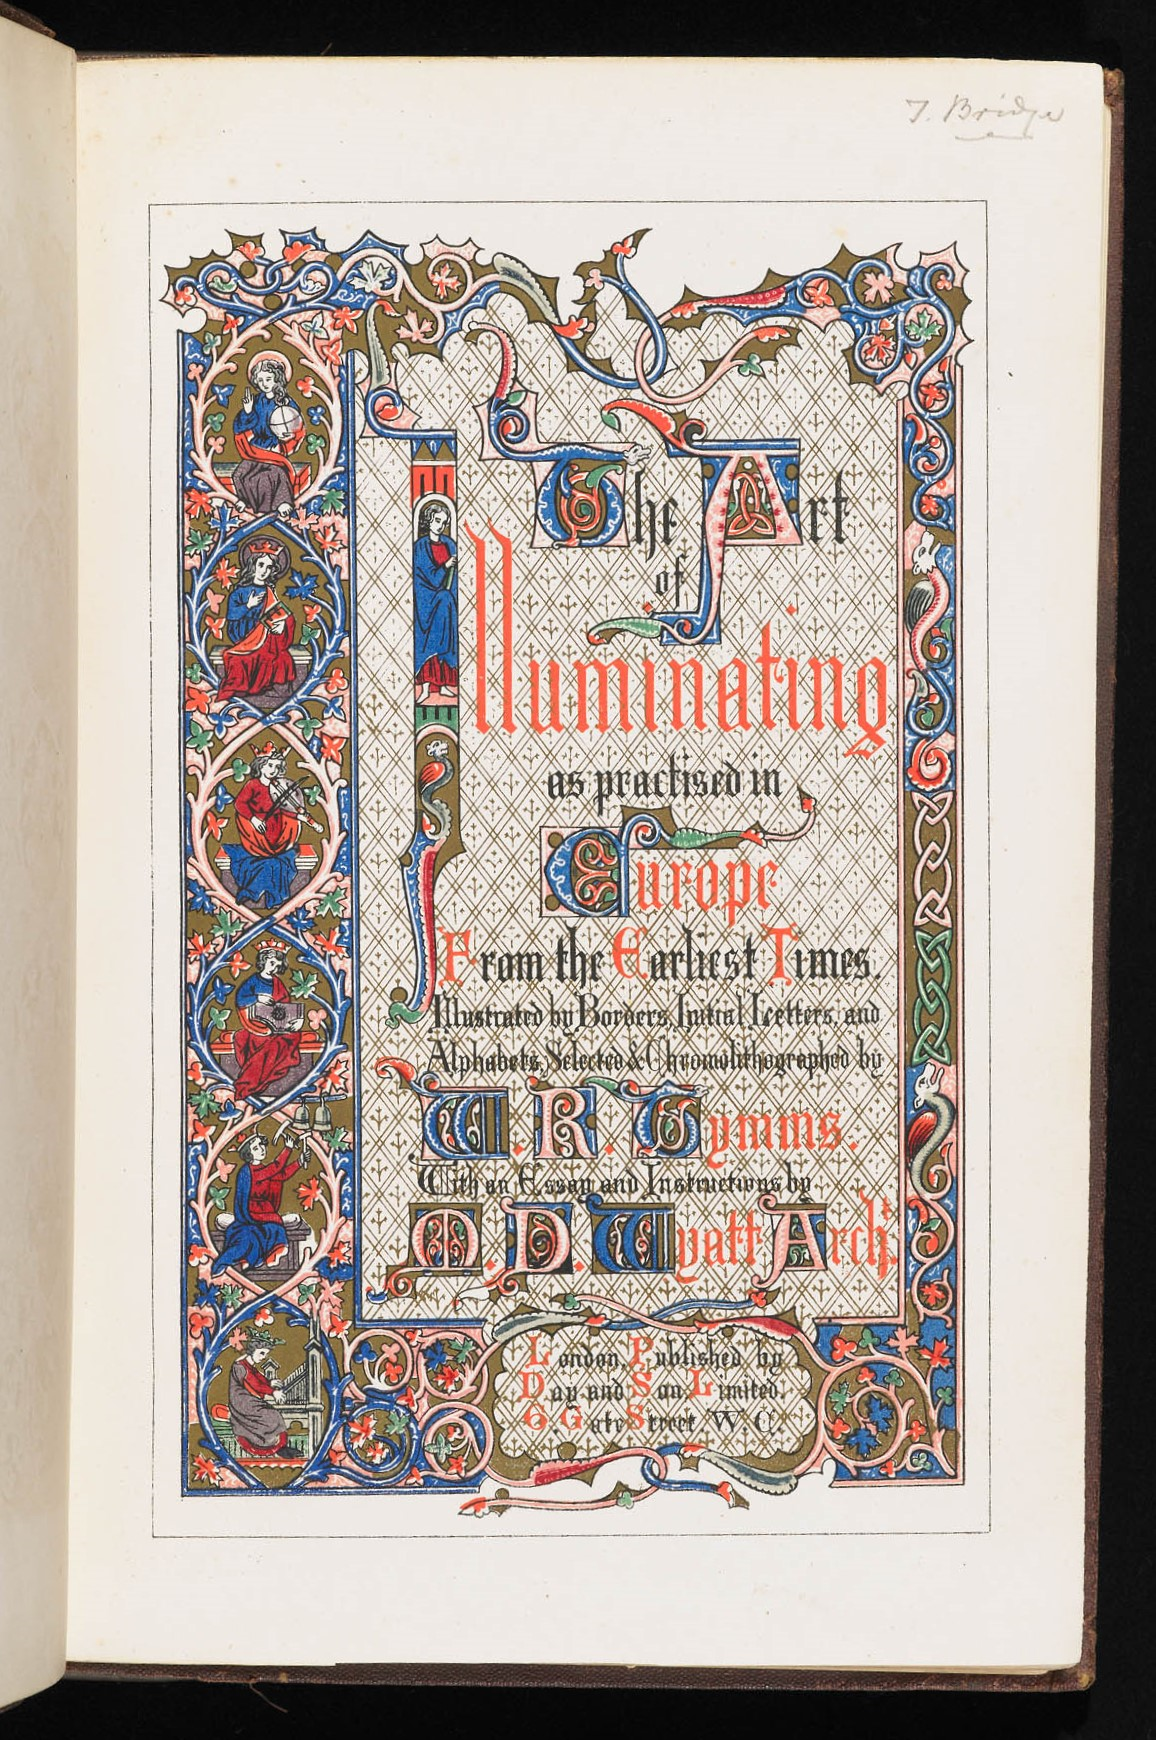 J. Bridge
The Art
of
Illuminating
as practised in
Europe
From the Earliest Times.
Illustrated by Borders, Initial Letters, and
Alphabets, Selected & Chromolithographed by
W. R. Tymms.
With an Essay and Instructions by
M. D. Wyatt Archt.
London, Published by
Day and Son Limited.
6. Gate Street W. C.